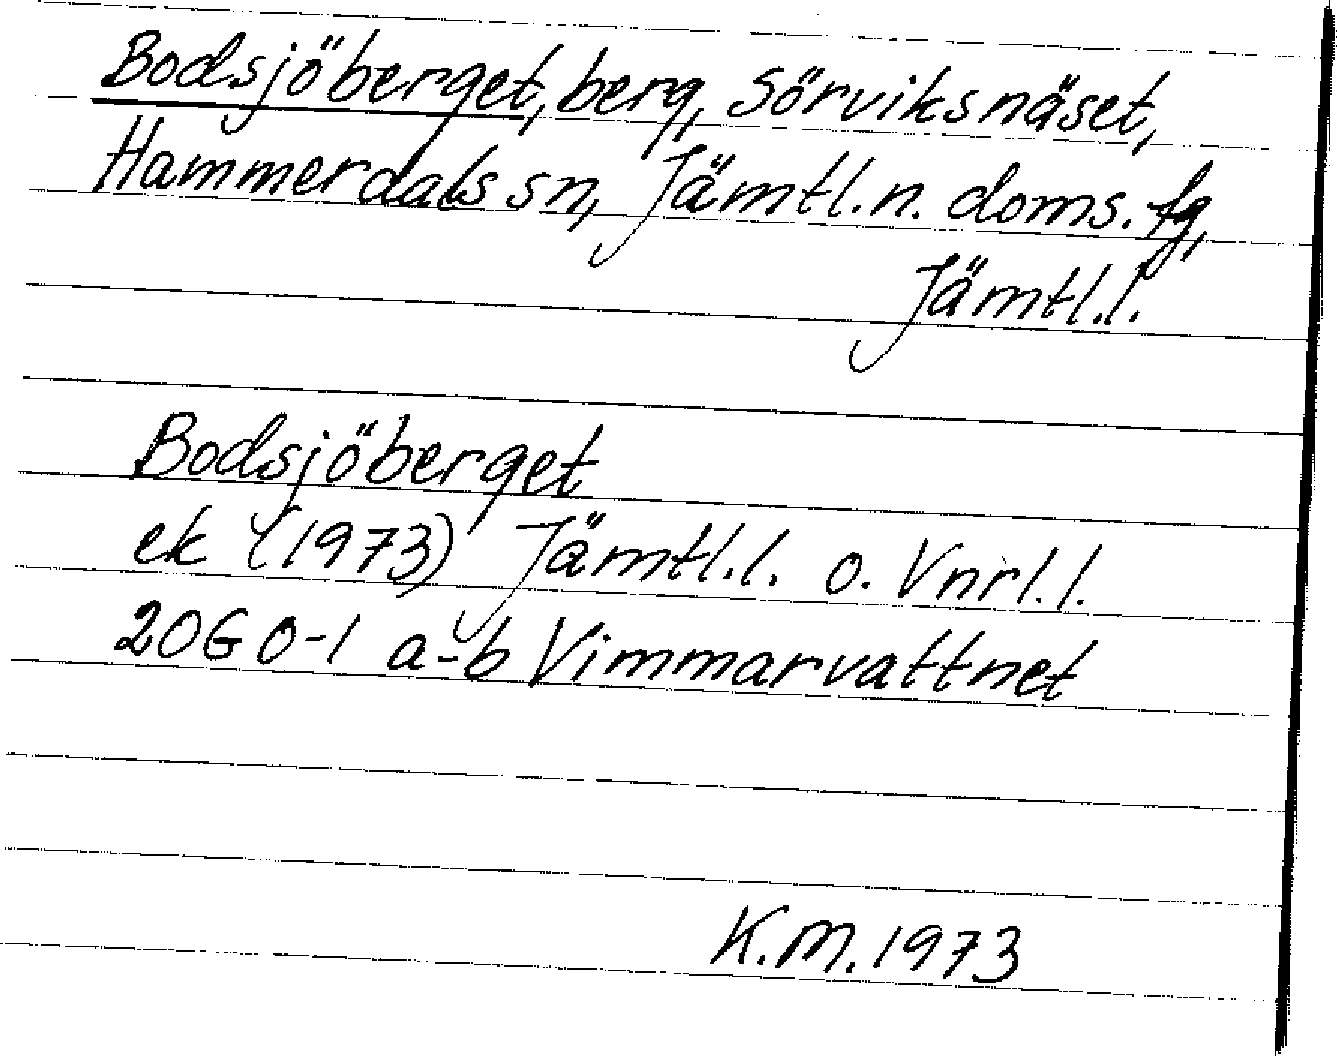 Bodsjöberget, berg, Sörviksnäset,
Hammerdals sn, Jämtl.n. doms. fg,
Jämtl.l.
Bodsjöberget
ek (1973) Jämtl.l. o. Vnrl.l.
20G 0-1 a-b Vimmarvattnet
K.M. 1973